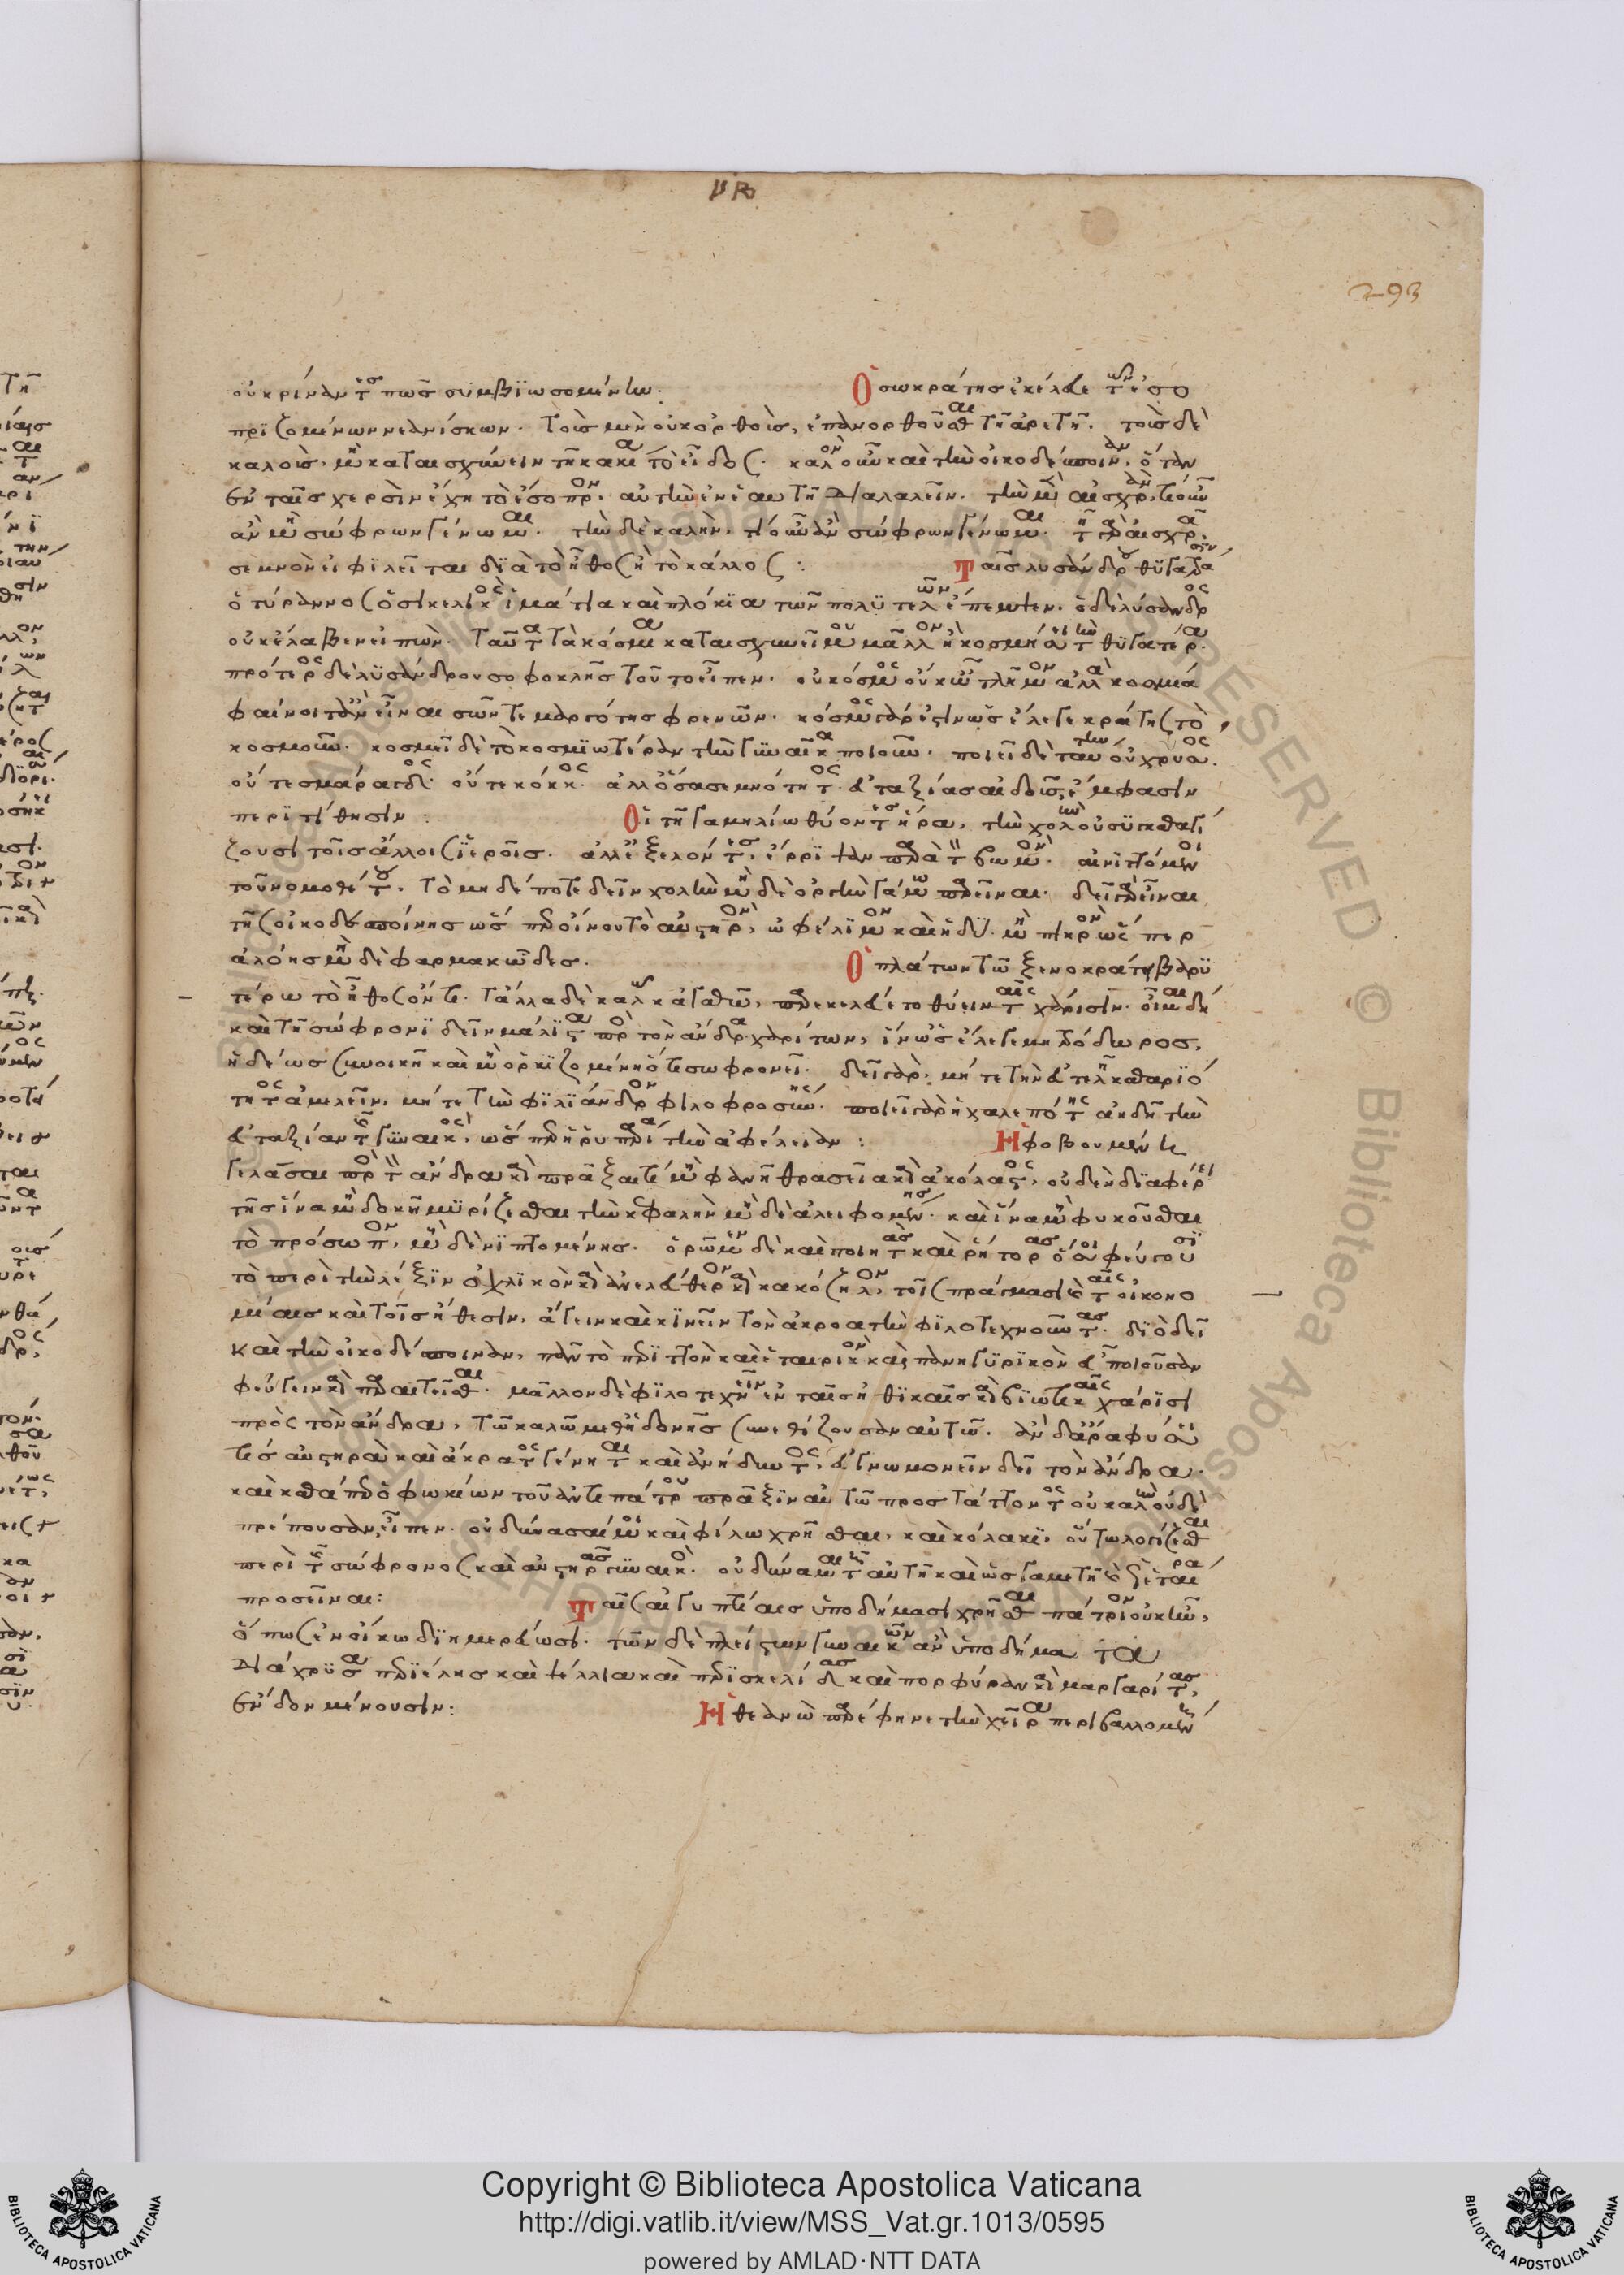 νβ
293
οὐ κρίναντες πῶς συμβιωσομένην: Ὁ σωκράτης ἐκέλευε τῶν ἐσο
πτριζομένων νεανίσκων. τοῖς μὲν οὐκ ὀρθοῖς, ἐπανορθοῦσθαι τῆ ἀρετῆ. τοῖς δὲ
καλοῖς, μὴ καταισχύνειν τῆ κακία τὸ εἶδος. καλὸν οὖν καὶ τὴν οἰκοδέσποιναν, ὅταν
ἐν ταῖς χερσὶν ἔχη τὸ ἔσοπτρον, αὐτὴν ἐν ἑαυτῆ διαλαλεῖν. τὴν μὲν αἰσχρὰν, τί οὖν
ἂν μὴ σώφρων γένωμαι. τὴν δὲ καλὴν, τί οὖν ἂν σώφρων γένωμαι. τῆ γὰρ αἰσχρᾶ,
σεμνὸν εἰ φιλεῖται διὰ τὸ ἦθος ἢ τὸ κάλλος: Ταῖς λυσάνδρου θυγατράσιν
ὁ τύραννος ὁ σικελικὸς ἱμάτια καὶ πλόκια τῶν πολυτελῶν ἔπεμψεν. ὁ δὲ λύσανδρος
οὐκ ἔλαβεν εἰπών. ταῦτα τὰ κόσμια καταισχυνεῖ μου μᾶλλον ἢ κοσμήσει τὰς θυγατέρας.
πρότερος δὲ λυσάνδρου σοφοκλῆς τοῦτο εἶπεν. οὐ κόσμος οὐκ ὦ τλῆμον ἀλλὰ κοσμία
φαίνοιτ' ἂν εἶναι σῶν τε μαργότης φρενῶν. κόσμος γάρ ἐστιν ὡς ἔλεγε κράτης τὸ
κοσμοῦν. κοσμεῖ δὲ τὸ κοσμιωτέραν τὴν γυναῖκα ποιοῦν. ποιεῖ δὲ ταύτην οὐ χρυσὸς
οὔτε σμάραγδος οὔτε κόκκος. ἀλλ' ὅσα σεμνότητος εὐταξίας αἰδοῦς, ἔμφασιν
περιτίθησιν: Οἱ τῆ γαμηλίω θύοντες ἥρα, τὴν χολὴν οὐ συγκαθαγί
ζουσι τοῖς ἄλλοις ἱεροῖς. ἀλλ' ἐξελόντες, ἔρριψαν παρὰ τὸν βωμὸν. αἰνιττομένου
τοῦ νομοθέτου, τὸ μηδέποτε δεῖν χολὴν μηδὲ ὀργὴν γάμω παρεῖναι. δεῖ γὰρ εἶναι
τῆς οἰκοδεσποίνης ὥσπερ οἴνου τὸ αὐστηρὸν, ὠφέλιμον καὶ ἡδύ. μὴ πικρὸν ὥσπερ
ἀλόης μηδὲ φαρμακῶδες. Ὁ πλάτων τῶ ξενοκράτη βαρυ
τέρω τὸ ἦθος ὄντι. τἄλλα δὲ καλῶ κἀγαθῶ, παρεκελεύετο θύειν ταῖς χάρισιν. οἶμαι δὴ
καὶ τῆ σώφρονι δεῖν μάλιστα πρὸς τὸν ἄνδρα χαρίτων, ἵν' ὡς ἔλεγε μητρόδωρος,
ἡδέως συνοικῆ καὶ μὴ ὀργιζομένη ὅτι σωφρονεῖ. δεῖ γὰρ, μήτε τὴν εὐτελῆ καθαριό
τητος ἀμελεῖν, μήτε τὴν φίλανδρον φιλοφροσύνης. ποιεῖ γὰρ ἡ χαλεπότης ἀηδῆ τὴν
εὐταξίαν τῆς γυναικός, ὥσπερ ἡ ῥυπαρία τὴν ἀφέλειαν: Ἡ φοβουμένη
γελάσαι πρὸς τὸν ἄνδρα καὶ πρᾶξαί τι μὴ φανῆ θρασεῖα καὶ ἀκόλαστος, οὐδὲν διαφέρει
τῆς ἵνα μὴ δοκῆ μυρίζεσθαι τὴν κεφαλὴν μηδὲ ἀλειφομένης. καὶ ἵνα μὴ φυκοῦσθαι
τὸ πρόσωπον, μηδὲ νιπτομένης. ὁρῶμεν δὲ καὶ ποιητὰς καὶ ῥήτορας ὅσοι φεύγουσι
τὸ περὶ τὴν λέξιν ὀχλικὸν καὶ ἀνελεύθερον καὶ κακόζηλον, τοῖς πράγμασι καὶ ταῖς οἰκονο
μίαις καὶ τοῖς ἤθεσιν, ἄγειν καὶ κινεῖν τὸν ἀκροατὴν φιλοτεχνοῦντας. διὸ δεῖ
καὶ τὴν οἰκοδέσποιναν, πᾶν τὸ περιττὸν καὶ ἑταιρικὸν καὶ πανηγυρικὸν εὖ ποιοῦσαν
φεύγειν καὶ παραιτεῖσθαι. μᾶλλον δὲ φιλοτεχνεῖν ἐν ταῖς ἠθικαῖς καὶ βιωτικαῖς χάρισι
πρὸς τὸν ἄνδρα, τῶ καλῶ μεθ' ἡδονῆς συνεθίζουσαν αὐτῶ. ἂν δ' ἄρα φύσει
τις αὐστηρὰ καὶ ἄκρατος γένηται καὶ ἀνήδυντος, εὐγνωμονεῖν δεῖ τὸν ἄνδρα.
καὶ καθάπερ ὁ φωκίων τοῦ ἀντιπάτρου πρᾶξιν αὐτῶ προστάττοντος οὐ καλὴν οὐδὲ
πρέπουσαν, εἶπεν. οὐ δύνασαί μοι καὶ φίλω χρῆσθαι, καὶ κόλακι. οὕτω λογίζεσθαι
περὶ τῆς σώφρονος καὶ αὐστηρᾶς γυναικὸς. οὐ δύναμαι τῆ αὐτῆ καὶ ὡς γαμετῆ καὶ ὡς ἑταίρα
προσεῖναι: Ταῖς αἰγυπτίαις ὑποδήμασι χρῆσθαι πάτριον οὐκ ἦν,
ὅπως ἐν οἴκω διημερεύωσι. τῶν δὲ πλείστων γυναικῶν ἂν ὑποδήματα
διάχρυσα περιέλης καὶ ψέλλια καὶ περισκελίδας καὶ πορφύραν καὶ μαργαρίτας,
ἔνδον μένουσιν: Ἡ θεανὼ παρέφηνε τὴν χεῖρα περιβαλλομένη
Copyright © Biblioteca Apostolica Vaticana
http://digi.vatlib.it/view/MSS_Vat.gr.1013/0595
powered by AMLAD·NTT DATA